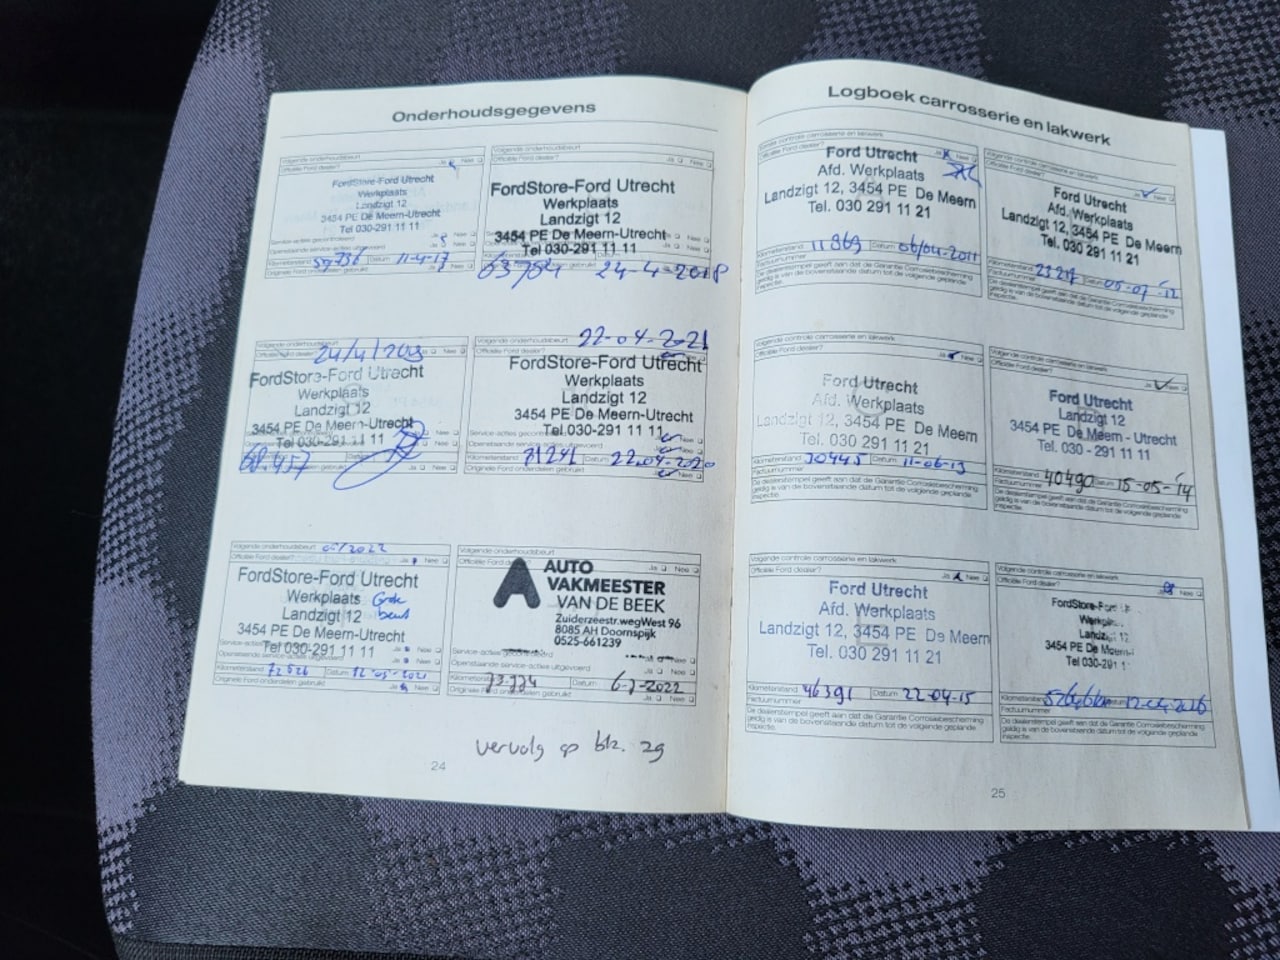 Onderhoudsgegevens
Volgende onderhoudsbeurt
Officiële Ford dealer? Ja Nee
FordStore-Ford Utrecht
Werkplaats
Landzigt 12
3454 PE De Meern-Utrecht
Tel 030-291 11 11
Service-acties gecontroleerd Ja Nee
Openstaande service-acties uitgevoerd Ja Nee
Kilometerstand 59.736 Datum 11-4-17
Originele Ford onderdelen gebruikt Ja Nee
Volgende onderhoudsbeurt
Officiële Ford dealer? Ja Nee
FordStore-Ford Utrecht
Werkplaats
Landzigt 12
3454 PE De Meern-Utrecht
Tel 030-291 11 11
63784 24-4-2018
Volgende onderhoudsbeurt
24/4/200
Ja Nee
FordStore-Ford Utrecht
Werkplaats
Landzigt 12
3454 PE De Meern-Utrecht
Tel 030-291 11 11
68.457
Volgende onderhoudsbeurt 22-04-2021
Officiële Ford dealer? Nee
FordStore-Ford Utrecht
Werkplaats
Landzigt 12
3454 PE De Meern-Utrecht
Tel 030-291 11 11
Openstaande service-acties uitgevoerd Nee
Kilometerstand 71241 Datum 22-04-2020
Originele Ford onderdelen gebruikt Nee
Volgende onderhoudsbeurt 05/2022
Officiële Ford dealer? Ja Nee
FordStore-Ford Utrecht
Werkplaats Grote
Landzigt 12 beurt
3454 PE De Meern-Utrecht
Tel 030-291 11 11
Kilometerstand 72526 Datum 12-05-2021
Originele Ford onderdelen gebruikt Ja Nee
Volgende onderhoudsbeurt
Officiële Ford dealer? Ja Nee
AUTO
VAKMEESTER
VAN DE BEEK
Zuiderzeestr.wegWest 96
8085 AH Doornspijk
0525-661239
Openstaande service-acties uitgevoerd
Kilometerstand 73.774 Datum 6-7-2022
Originele Ford onderdelen gebruikt Ja Nee
vervolg op blz. 29
24
Logboek carrosserie en lakwerk
Volgende controle carrosserie en lakwerk
Officiële Ford dealer? Ja Nee
Ford Utrecht
Afd. Werkplaats
Landzigt 12, 3454 PE De Meern
Tel. 030 291 11 21
Kilometerstand 11969 Datum 06/04-2011
Factuurnummer
De dealerstempel geeft aan dat de Garantie Corrosiebescherming
geldig is van de bovenstaande datum tot de volgende geplande
inspectie.
Volgende controle carrosserie en lakwerk
Officiële Ford dealer? Ja Nee
Ford Utrecht
Afd. Werkplaats
Landzigt 12, 3454 PE De Meern
Tel. 030 291 11 21
Kilometerstand 23217 Datum 05-07-'12
Factuurnummer
De dealerstempel geeft aan dat de Garantie Corrosiebescherming
geldig is van de bovenstaande datum tot de volgende geplande
inspectie.
Volgende controle carrosserie en lakwerk
Officiële Ford dealer? Ja Nee
Ford Utrecht
Afd. Werkplaats
Landzigt 12, 3454 PE De Meern
Tel. 030 291 11 21
Kilometerstand 30445 Datum 11-06-13
Factuurnummer
De dealerstempel geeft aan dat de Garantie Corrosiebescherming
geldig is van de bovenstaande datum tot de volgende geplande
inspectie.
Volgende controle carrosserie en lakwerk
Officiële Ford dealer? Ja Nee
Ford Utrecht
Landzigt 12
3454 PE De Meern - Utrecht
Tel. 030 - 291 11 11
Kilometerstand 40490 Datum 15-05-'14
Factuurnummer
De dealerstempel geeft aan dat de Garantie Corrosiebescherming
geldig is van de bovenstaande datum tot de volgende geplande
inspectie.
Volgende controle carrosserie en lakwerk
Officiële Ford dealer? Ja Nee
Ford Utrecht
Afd. Werkplaats
Landzigt 12, 3454 PE De Meern
Tel. 030 291 11 21
Kilometerstand 46391 Datum 22-04-15
Factuurnummer
De dealerstempel geeft aan dat de Garantie Corrosiebescherming
geldig is van de bovenstaande datum tot de volgende geplande
inspectie.
Volgende controle carrosserie en lakwerk
Officiële Ford dealer? Nee
FordStore-Ford
Landzigt 12
3454 PE De Meern
Tel 030-291
Kilometerstand Datum 12-04-2016
Factuurnummer
De dealerstempel geeft aan dat de Garantie Corrosiebescherming
geldig is van de bovenstaande datum tot de volgende geplande
inspectie.
25